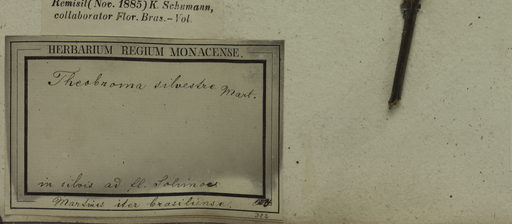 Remisit (Nov. 1885) K. Schumann,
collaborator Flor. Bras.-Vol.
HERBARIUM REGIUM MONACENSE.
Theobroma silvestre Mart.
in silvis ad fl. Solimoes
Martius iter brasiliense.